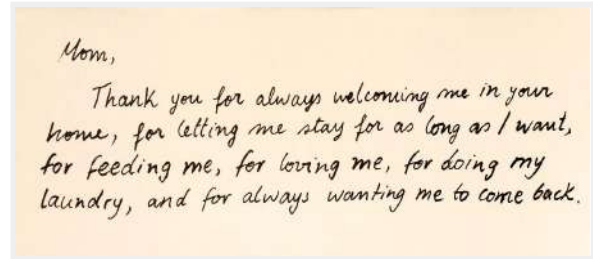 Mom,
Thank you for always welcoming me in your
home, for letting me stay for as long as I want,
for feeding me, for loving me, for doing my
laundry, and for always wanting me to come back.